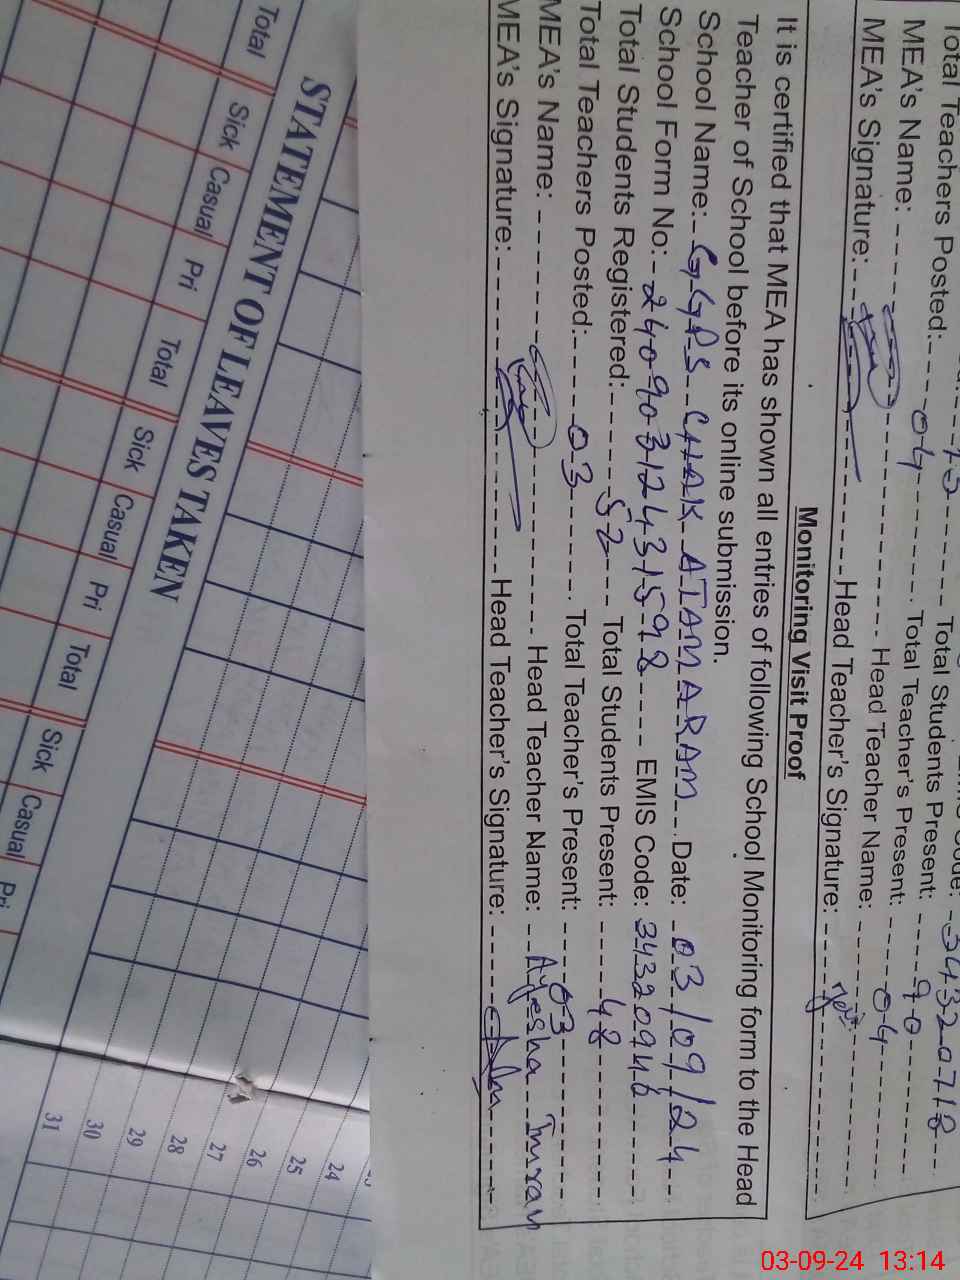 Total Teachers Posted: 04 Total Teacher's Present: 04
Total Students Present: 90
34320718
MEA's Name: Head Teacher Name:
MEA's Signature: Head Teacher's Signature:
Monitoring Visit Proof
It is certified that MEA has shown all entries of following School Monitoring form to the Head
Teacher of School before its online submission.
School Name: GGPS CHAK ATAMARAM Date: 03/09/24
School Form No: 24090312431598 EMIS Code: 34320946
Total Students Registered: 52 Total Students Present: 48
Total Teachers Posted: 03 Total Teacher's Present: 03
MEA's Name: Head Teacher Name: Ayesha Imran
MEA's Signature: Head Teacher's Signature:
24
25
26
27
28
29
30
31
STATEMENT OF LEAVES TAKEN
Total Sick Casual Pri Total Sick Casual Pri Total Sick Casual Pri
03-09-24 13:14